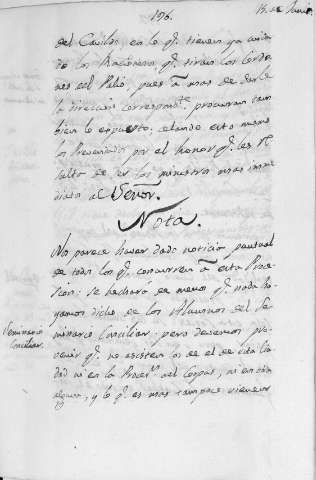 196.
15. de Junio.
del Cavildo, en lo qe. tienen ya cuida
do los Racioneros qe. sirven los Cordo
nes del Palio, pues â mas de darle
la direccion correspondte. procuran tam
bien lo expuesto, celando esto mismo
los Prevendados por el honor qe. les re
sulta de ser los ministros mas inme
diatos al Señor.
Nota.
No parece haver dado noticia puntual
de todos los qe. concurren â esta Proce
sion: se hechará de menos qe. nada ha
yamos dicho de los Alumnos del Se
minario Conciliar; pero devemos pre
venir qe. no asisten los de el de esta Ciu
dad ni en la Procesn. del Corpus, ni en otra
alguna; y lo qe. es mas tampoco vienen
Seminario
Conciliar.